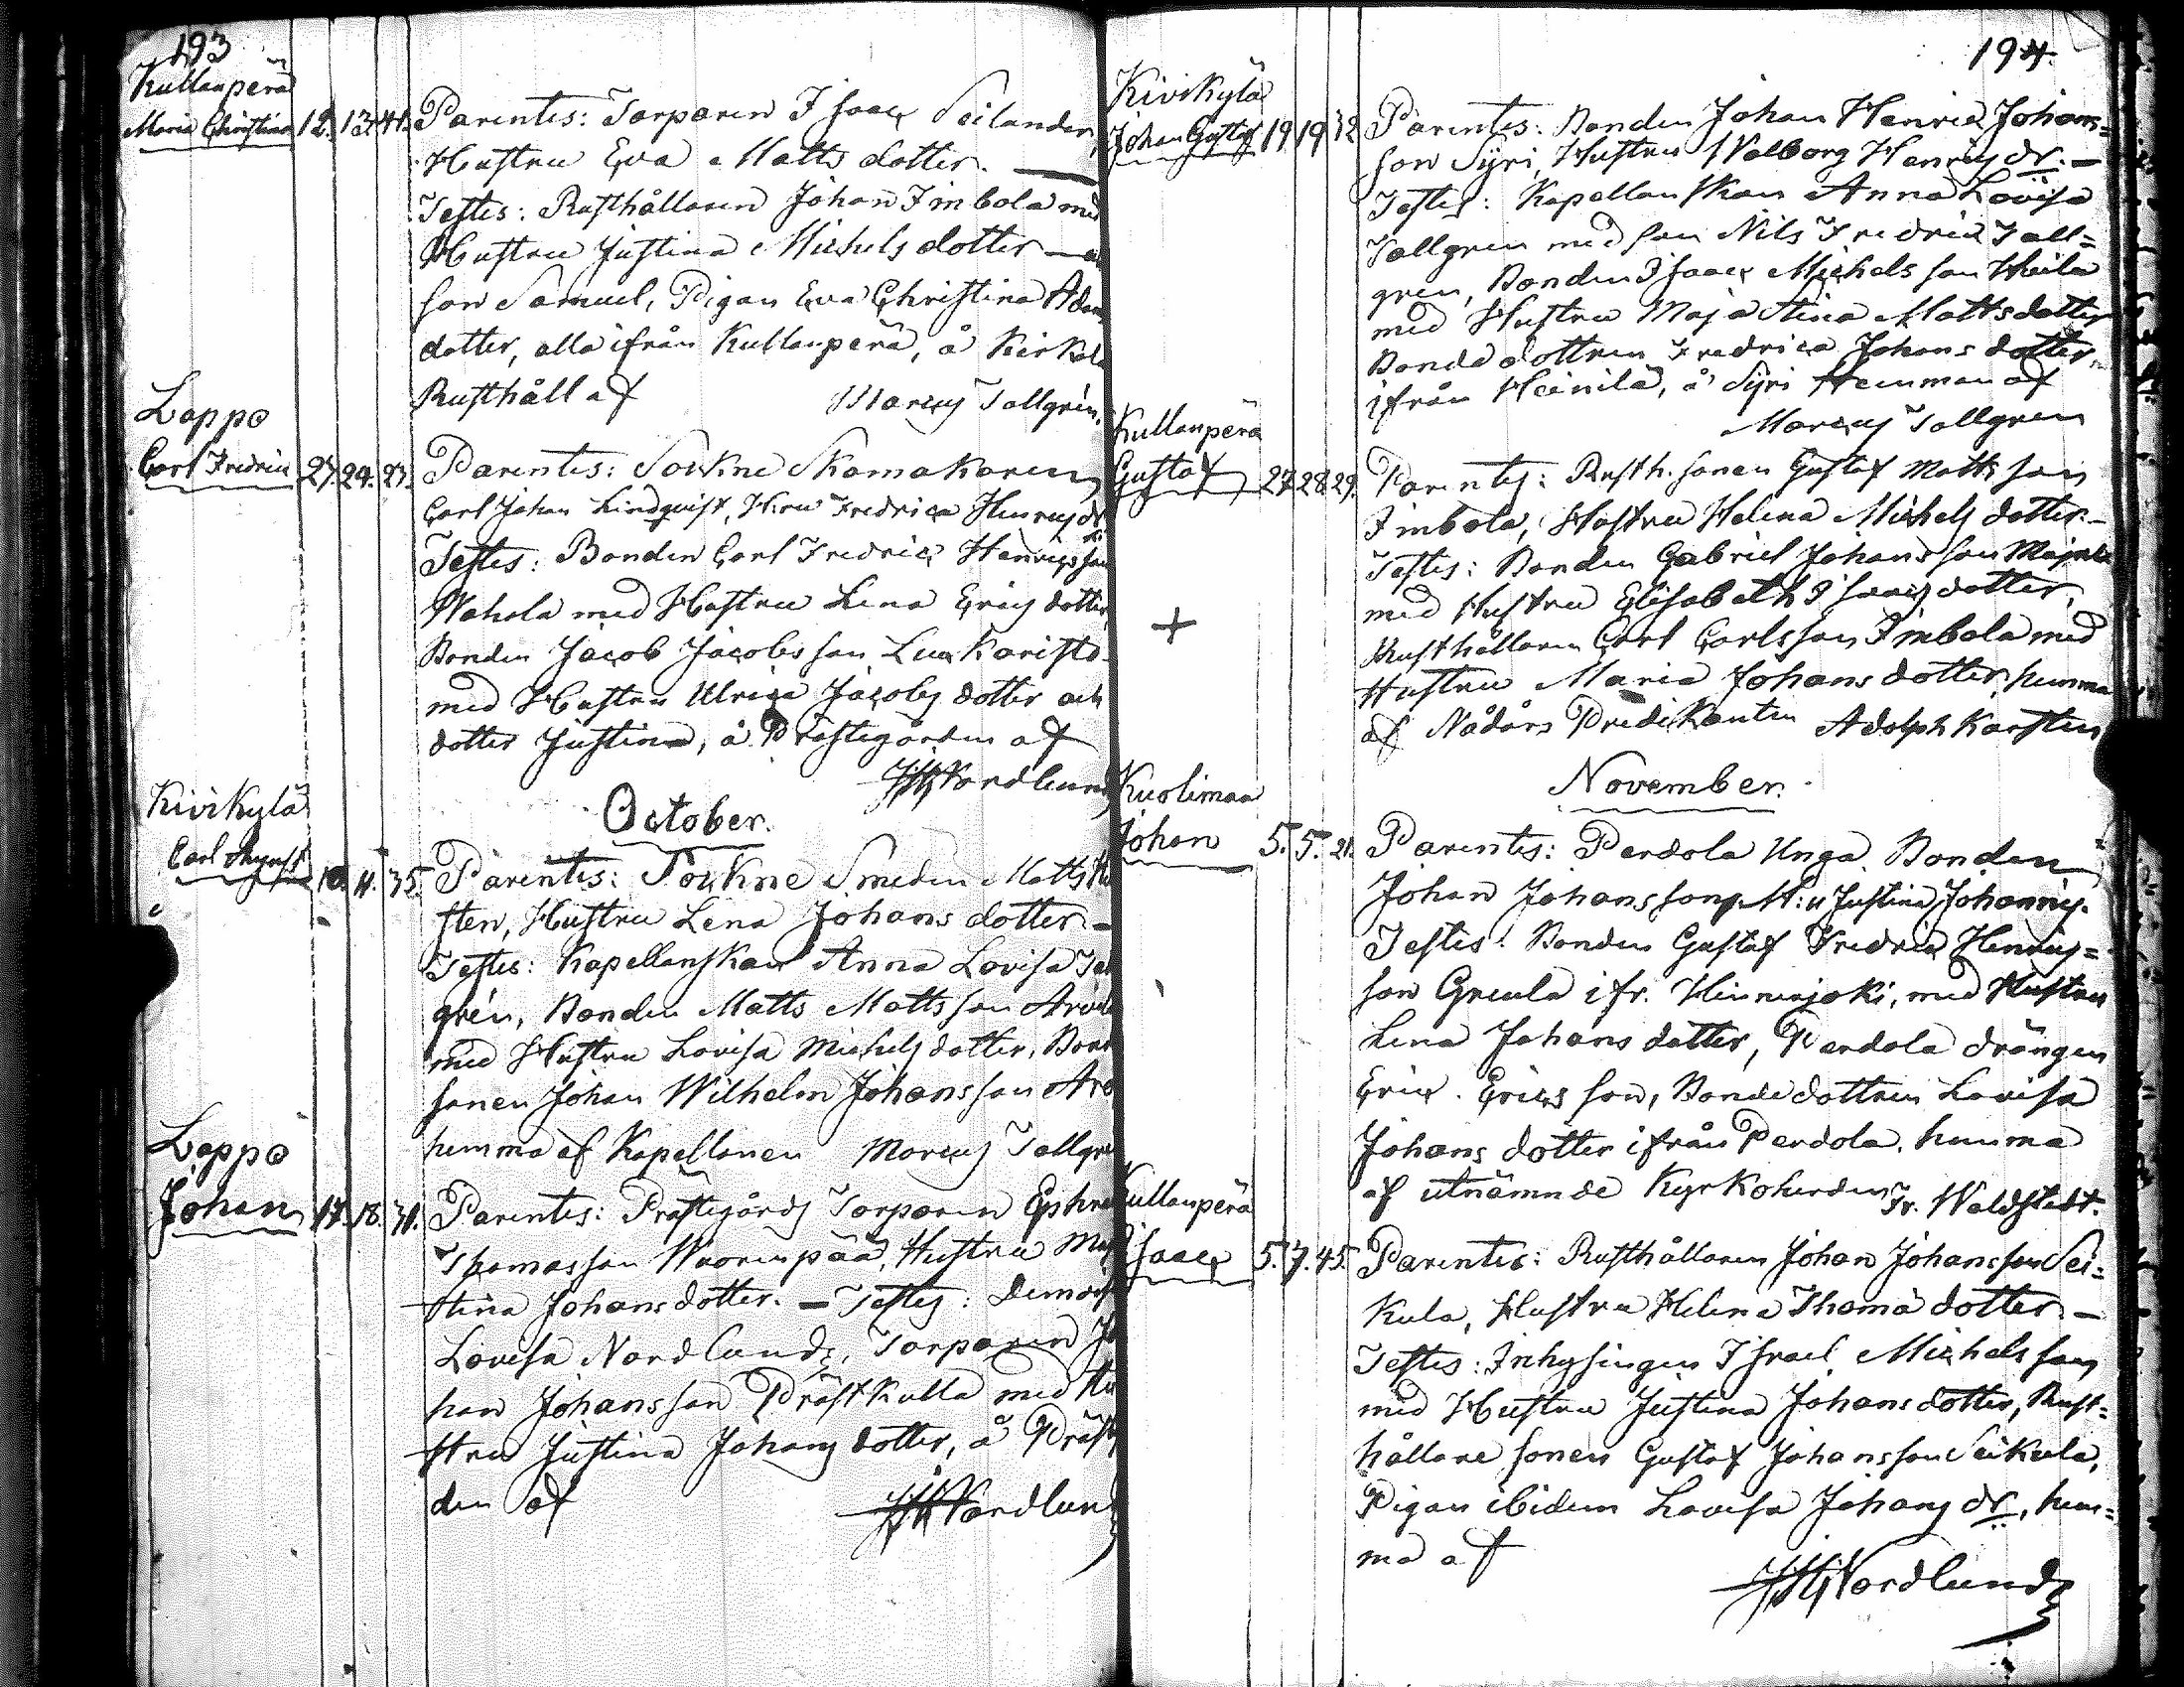 193
Kullanperä
Maria Christina 12. 13. 41. Parentes: Torparen Isaac Seilander,
Hustru Eva Matts dotter. —
Testes: Rusthållaren Johan Imbola med
Hustru Justina Michels dotter —
son Samuel, Pigan Eva Christina Adams
dotter, alla ifrån Kullanperä, å Kirkola
Rusthåll af Marcus Tallgrén.
Lappo
Carl Fredric 27. 29. 23. Parentes: Sockne Skomakaren
Carl Johan Lindqvist, H:ru Fredrica Henrics dr
Testes: Bonden Carl Fredric Henricsson
Wahola med Hustru Lena Erics dotter,
Bonden Jacob Jacobsson Luukaristo
med Hustru Ulrica Jacobs dotter och
dotter Justina, å Prästegården af
Nordlund
October.
Kivikylä
Carl August 10. 11. 35. Parentes: Sockne Smeden Matts
sten, Hustru Lena Johans dotter —
Testes: Kapellanskan Anna Lovisa
grén, Bonden Matts Mattsson
med Hustru Lovisa Michels dotter,
sonen Johan Wilhelm Johansson
hemma af Kapellanen Marcus Tallgren
Lappo
Johan 17. 18. 31. Parentes: Prästegårds Torparen
Thomasson Wuorenpää, Hustru
stina Johansdotter. — Testes:
Lovisa Nordlund, Torparen Jo
han Johansson Prästkulla med Hu
stru Justina Johans dotter, å
den af Nordlund
194.
Kivikylä
Johan Gustaf 19 19 32 Parentes: Bonden Johan Henric Johans=
son Syri, Hustru Walborg Henrics dr. —
Testes: Kapellanskan Anna Lovisa
Tallgren med son Nils Fredric Tall=
gren, Bonden Isaac Michelsson Heila
med Hustru Maja Stina Mattsdotter
Bondedottren Fredrica Johans dotter
ifrån Heinilä, å Syri Hemman af
Marcus Tallgren
Kullanperä
Gustaf 27 28 29. Parentes: Rusth. sonen Gustaf Mattsson
Imbola, Hustru Helena Michels dotter. —
Testes: Bonden Gabriel Johansson
med Hustru Elisabeth Isaacs dotter,
+
Rusthållaren Carl Carlsson Imbola med
Hustru Maria Johans dotter, hemma
af Nådårs Predikanten Adolph Karsten
November.
Kuolimaa
Johan 5. 5. 21. Parentes: Perdola Unga Bonden
Johan Johansson, H:u Justina
Testes: Bonden Gustaf Fredric Henrics=
son Greula ifr. Hinnerjoki, med Hustru
Lena Johans dotter, Perdola drängen
Eric Ericsson, Bondedottren Lovisa
Johans dotter ifrån Perdola. hemma
af utnämnde Kyrkoherden Fr. Waldstedt.
Kullanperä
Isaac 5. 7. 45. Parentes: Rusthållaren Johan Johansson Sei=
kula, Hustru Helena Thomä dotter —
Testes: Inhysingen Israel Michelsson
med Hustru Justina Johans dotter, Rust=
hållare sonen Gustaf Johansson Seikula,
Pigan ibidem Lovisa Johans dr, hem=
ma af
Nordlund